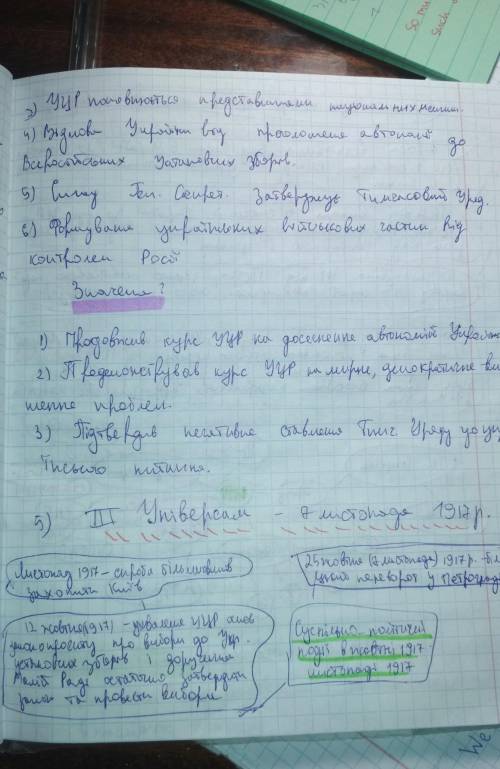 3) УЦР поповнюється представниками національних меншин.
4) Відмова України від проголошення автономії до
Всеросійських Установчих зборів.
5) Склад Ген. Секрет. Затверджує Тимчасовий Уряд.
6) Формування українських військових частин під
контролем Росії
Значення?
1) Продовжив курс УЦР на досягнення автономії України
2) Продемонстрував курс УЦР на мирне, демократичне ви
шення проблем.
3) Підтвердив негативне ставлення Тимч. Уряду до ук
питання.
5) III Універсал – 7 листопада 1917 р.
Листопад 1917 – спроба більшовиків
захопити Київ
25 жовтня (7 листопада) 1917 р.
переворот у Петрограді
12 жовтня (1917) – ухвалення УЦР
про вибори до Укр.
установчих зборів і доручення
Малій Раді остаточно затвердити
закон та провести вибори
Суспільно політичні
події в жовтні 1917
листопаді 1917
So mu
such
We